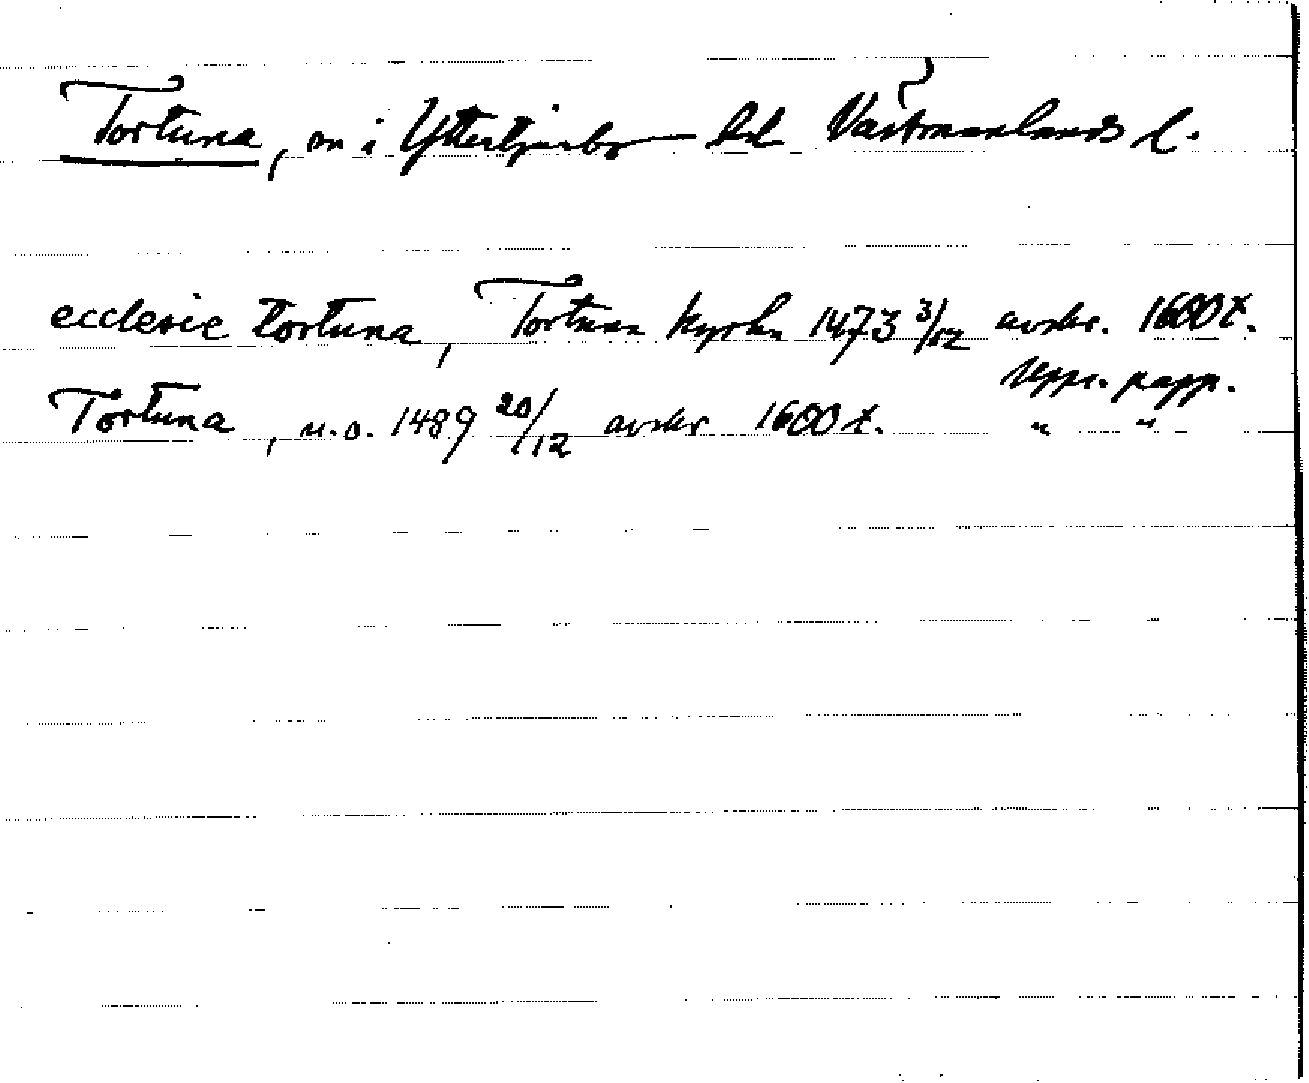 Tortuna, sn i Yttertjurbo hd Västmanlands l.
ecclesie tortuna, Tortuna kyrka 1473 3/12 avskr. 1600t.
Upps. papp.
Tortuna, u.o. 1489 20/12 avskr 1600t. " "